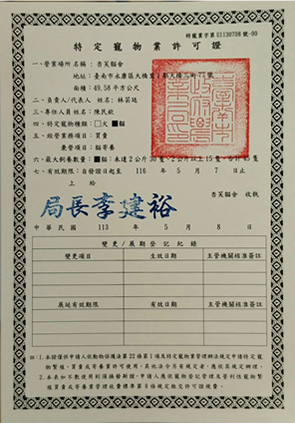 特寵業字第S1130708號-00
特定寵物業許可證
一、營業場所名稱：杏芙貓舍
地址：臺南市永康區大橋里
面積：49.58平方公尺
二、負責人/代表人 姓名：林芸廷
三、專任人員姓名：陳民欽
四、特定寵物種類：□犬 ■貓
五、經營業務項目：買賣
兼營項目：貓寄養
六、最大飼養數量：■貓：未達2公斤30隻、2公斤以上15隻、合計45隻
七、有效期限：自發證日起至 116 年 5 月 7 日止
上 給
杏芙貓舍 收執
局長李建裕
中華民國 113 年 5 月 8 日
變更/展期登記紀錄
變更項目 生效日期 主管機關核准簽註
展延有效期限 有效日期 主管機關核准簽註
註：1.本證僅供申請人依動物保護法第22條第1項及特定寵物業管理辦法規定申請特定寵物繁殖、買賣或寄養業許可使用，其他法令另有規定者，應依其規定辦理。